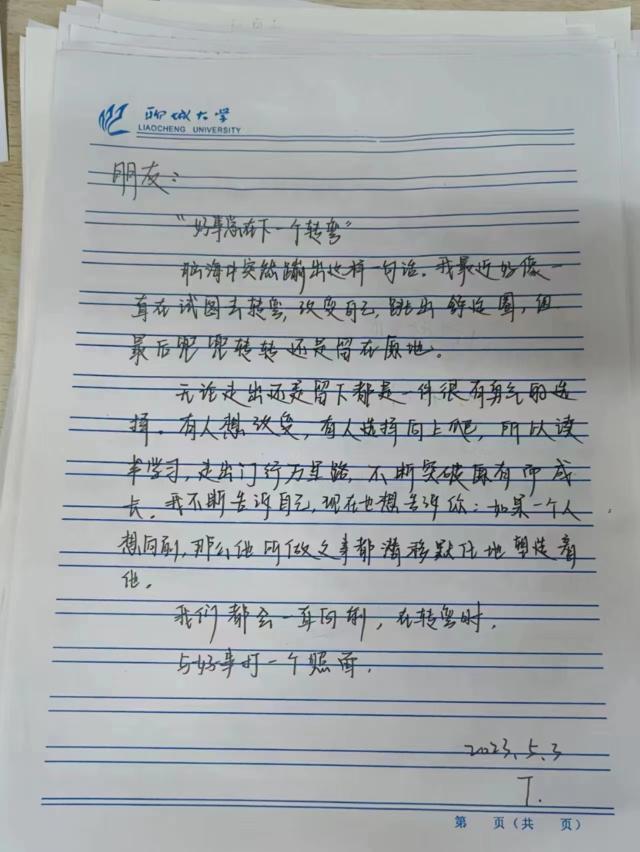 聊城大学
LIAOCHENG UNIVERSITY
朋友：
“好事总在下一个转弯”
脑海中突然蹦出这样一句话。我最近好像一
直在试图去转弯，改变自己，跳出舒适圈，但
最后兜兜转转还是留在原地。
无论走出还是留下都是一件很有勇气的选
择。有人想改变，有人选择向上爬，所以读
书学习，走出门行万里路，不断突破原有而成
长。我不断告诉自己，现在也想告诉你：如果一个人
想向前，那么他所做之事都潜移默化地塑造着
他。
我们都会一直向前，在转弯时，
与好事打一个照面。
2023.5.3
T.
第 页（共 页）